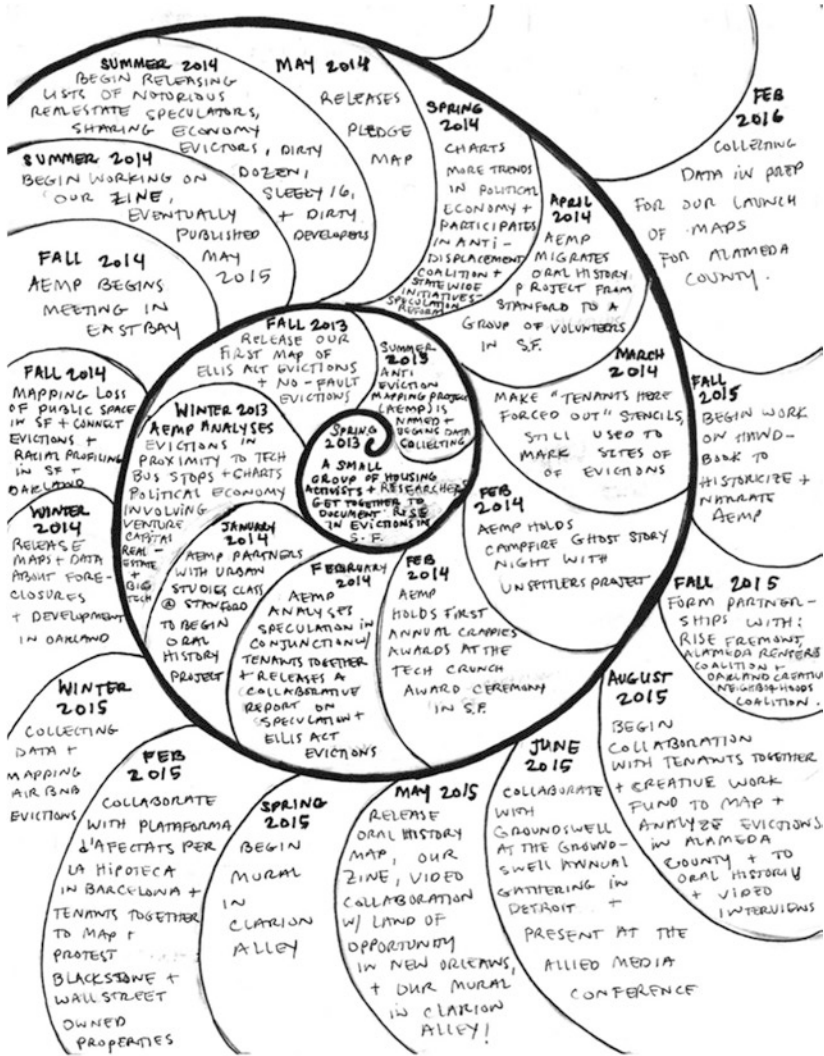 SPRING
2013
A SMALL
GROUP OF HOUSING
ACTIVISTS + RESEARCHERS
GET TOGETHER TO
DOCUMENT RISE
IN EVICTIONS IN
S.F.
SUMMER
2013
ANTI
EVICTION
MAPPING PROJECT
(AEMP) IS
NAMED +
BEGINS DATA
COLLECTING
FALL 2013
RELEASE OUR
FIRST MAP OF
ELLIS ACT EVICTIONS
+ NO-FAULT
EVICTIONS
WINTER 2013
AEMP ANALYSES
EVICTIONS IN
PROXIMITY TO TECH
BUS STOPS + CHARTS
POLITICAL ECONOMY
INVOLVING
VENTURE
CAPITAL
REAL-
ESTATE
+
BIG
TECH
JANUARY
2014
AEMP PARTNERS
WITH URBAN
STUDIES CLASS
@ STANFORD
TO BEGIN
ORAL
HISTORY
PROJECT
FEBRUARY
2014
AEMP
ANALYSES
SPECULATION IN
CONJUNCTION W/
TENANTS TOGETHER
+ RELEASES A
COLLABORATIVE
REPORT ON
SPECULATION +
ELLIS ACT
EVICTIONS
FEB
2014
AEMP
HOLDS FIRST
ANNUAL CRAPPIES
AWARDS AT THE
TECH CRUNCH
AWARD CEREMONY
IN S.F.
FEB
2014
AEMP HOLDS
CAMPFIRE GHOST STORY
NIGHT WITH
UNSETTLERS PROJECT
MARCH
2014
MAKE "TENANTS HERE
FORCED OUT" STENCILS,
STILL USED TO
MARK SITES OF
OF EVICTIONS
APRIL
2014
AEMP
MIGRATES
ORAL HISTORY
PROJECT FROM
STANFORD TO A
GROUP OF VOLUNTEERS
IN S.F.
SPRING
2014
CHARTS
MORE TRENDS
IN POLITICAL
ECONOMY +
PARTICIPATES
IN ANTI-
DISPLACEMENT
COALITION +
STATEWIDE
INITIATIVES -
SPECULATION
REFORM
MAY 2014
RELEASES
PLEDGE
MAP
SUMMER 2014
BEGIN RELEASING
LISTS OF NOTORIOUS
REAL ESTATE SPECULATORS,
SHARING ECONOMY
EVICTORS, DIRTY
DOZEN,
SLEEZY 16,
+ DIRTY
DEVELOPERS
SUMMER 2014
BEGIN WORKING ON
OUR ZINE,
EVENTUALLY
PUBLISHED
MAY
2015
FALL 2014
AEMP BEGINS
MEETING IN
EAST BAY
FALL 2014
MAPPING LOSS
OF PUBLIC SPACE
IN SF + CONNECT
EVICTIONS +
RACIAL PROFILING
IN SF +
OAKLAND
WINTER
2014
RELEASE
MAPS + DATA
ABOUT FORE-
CLOSURES
+ DEVELOPMENT
IN OAKLAND
WINTER
2015
COLLECTING
DATA +
MAPPING
AIR BNB
EVICTIONS
FEB
2015
COLLABORATE
WITH PLATAFORMA
d'AFECTATS PER
LA HIPOTECA
IN BARCELONA +
TENANTS TOGETHER
TO MAP +
PROTEST
BLACKSTONE +
WALL STREET
OWNED
PROPERTIES
SPRING
2015
BEGIN
MURAL
IN
CLARION
ALLEY
MAY 2015
RELEASE
ORAL HISTORY
MAP, OUR
ZINE, VIDEO
COLLABORATION
W/ LAND OF
OPPORTUNITY
IN NEW ORLEANS,
+ OUR MURAL
IN CLARION
ALLEY!
JUNE
2015
COLLABORATE
WITH
GROUNDSWELL
AT THE GROUND-
SWELL ANNUAL
GATHERING IN
DETROIT +
PRESENT AT THE
ALLIED MEDIA
CONFERENCE
AUGUST
2015
BEGIN
COLLABORATION
WITH TENANTS TOGETHER
+ CREATIVE WORK
FUND TO MAP +
ANALYZE EVICTIONS
IN ALAMEDA
COUNTY + TO
ORAL HISTORIY
+ VIDEO
INTERVIEWS
FALL 2015
FORM PARTNER-
SHIPS WITH:
RISE FREMONT,
ALAMEDA RENTERS
COALITION +
OAKLAND CREATIVE
NEIGHBORHOODS
COALITION.
FALL
2015
BEGIN WORK
ON HAND-
BOOK TO
HISTORICIZE +
NARRATE
AEMP
FEB
2016
COLLECTING
DATA IN PREP
FOR OUR LAUNCH
OF MAPS
FOR ALAMEDA
COUNTY.